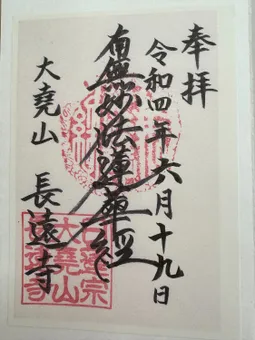 奉拝
令和四年六月十九日
南無妙法蓮華経
大堯山 長遠寺
日蓮宗
大堯山
長遠寺